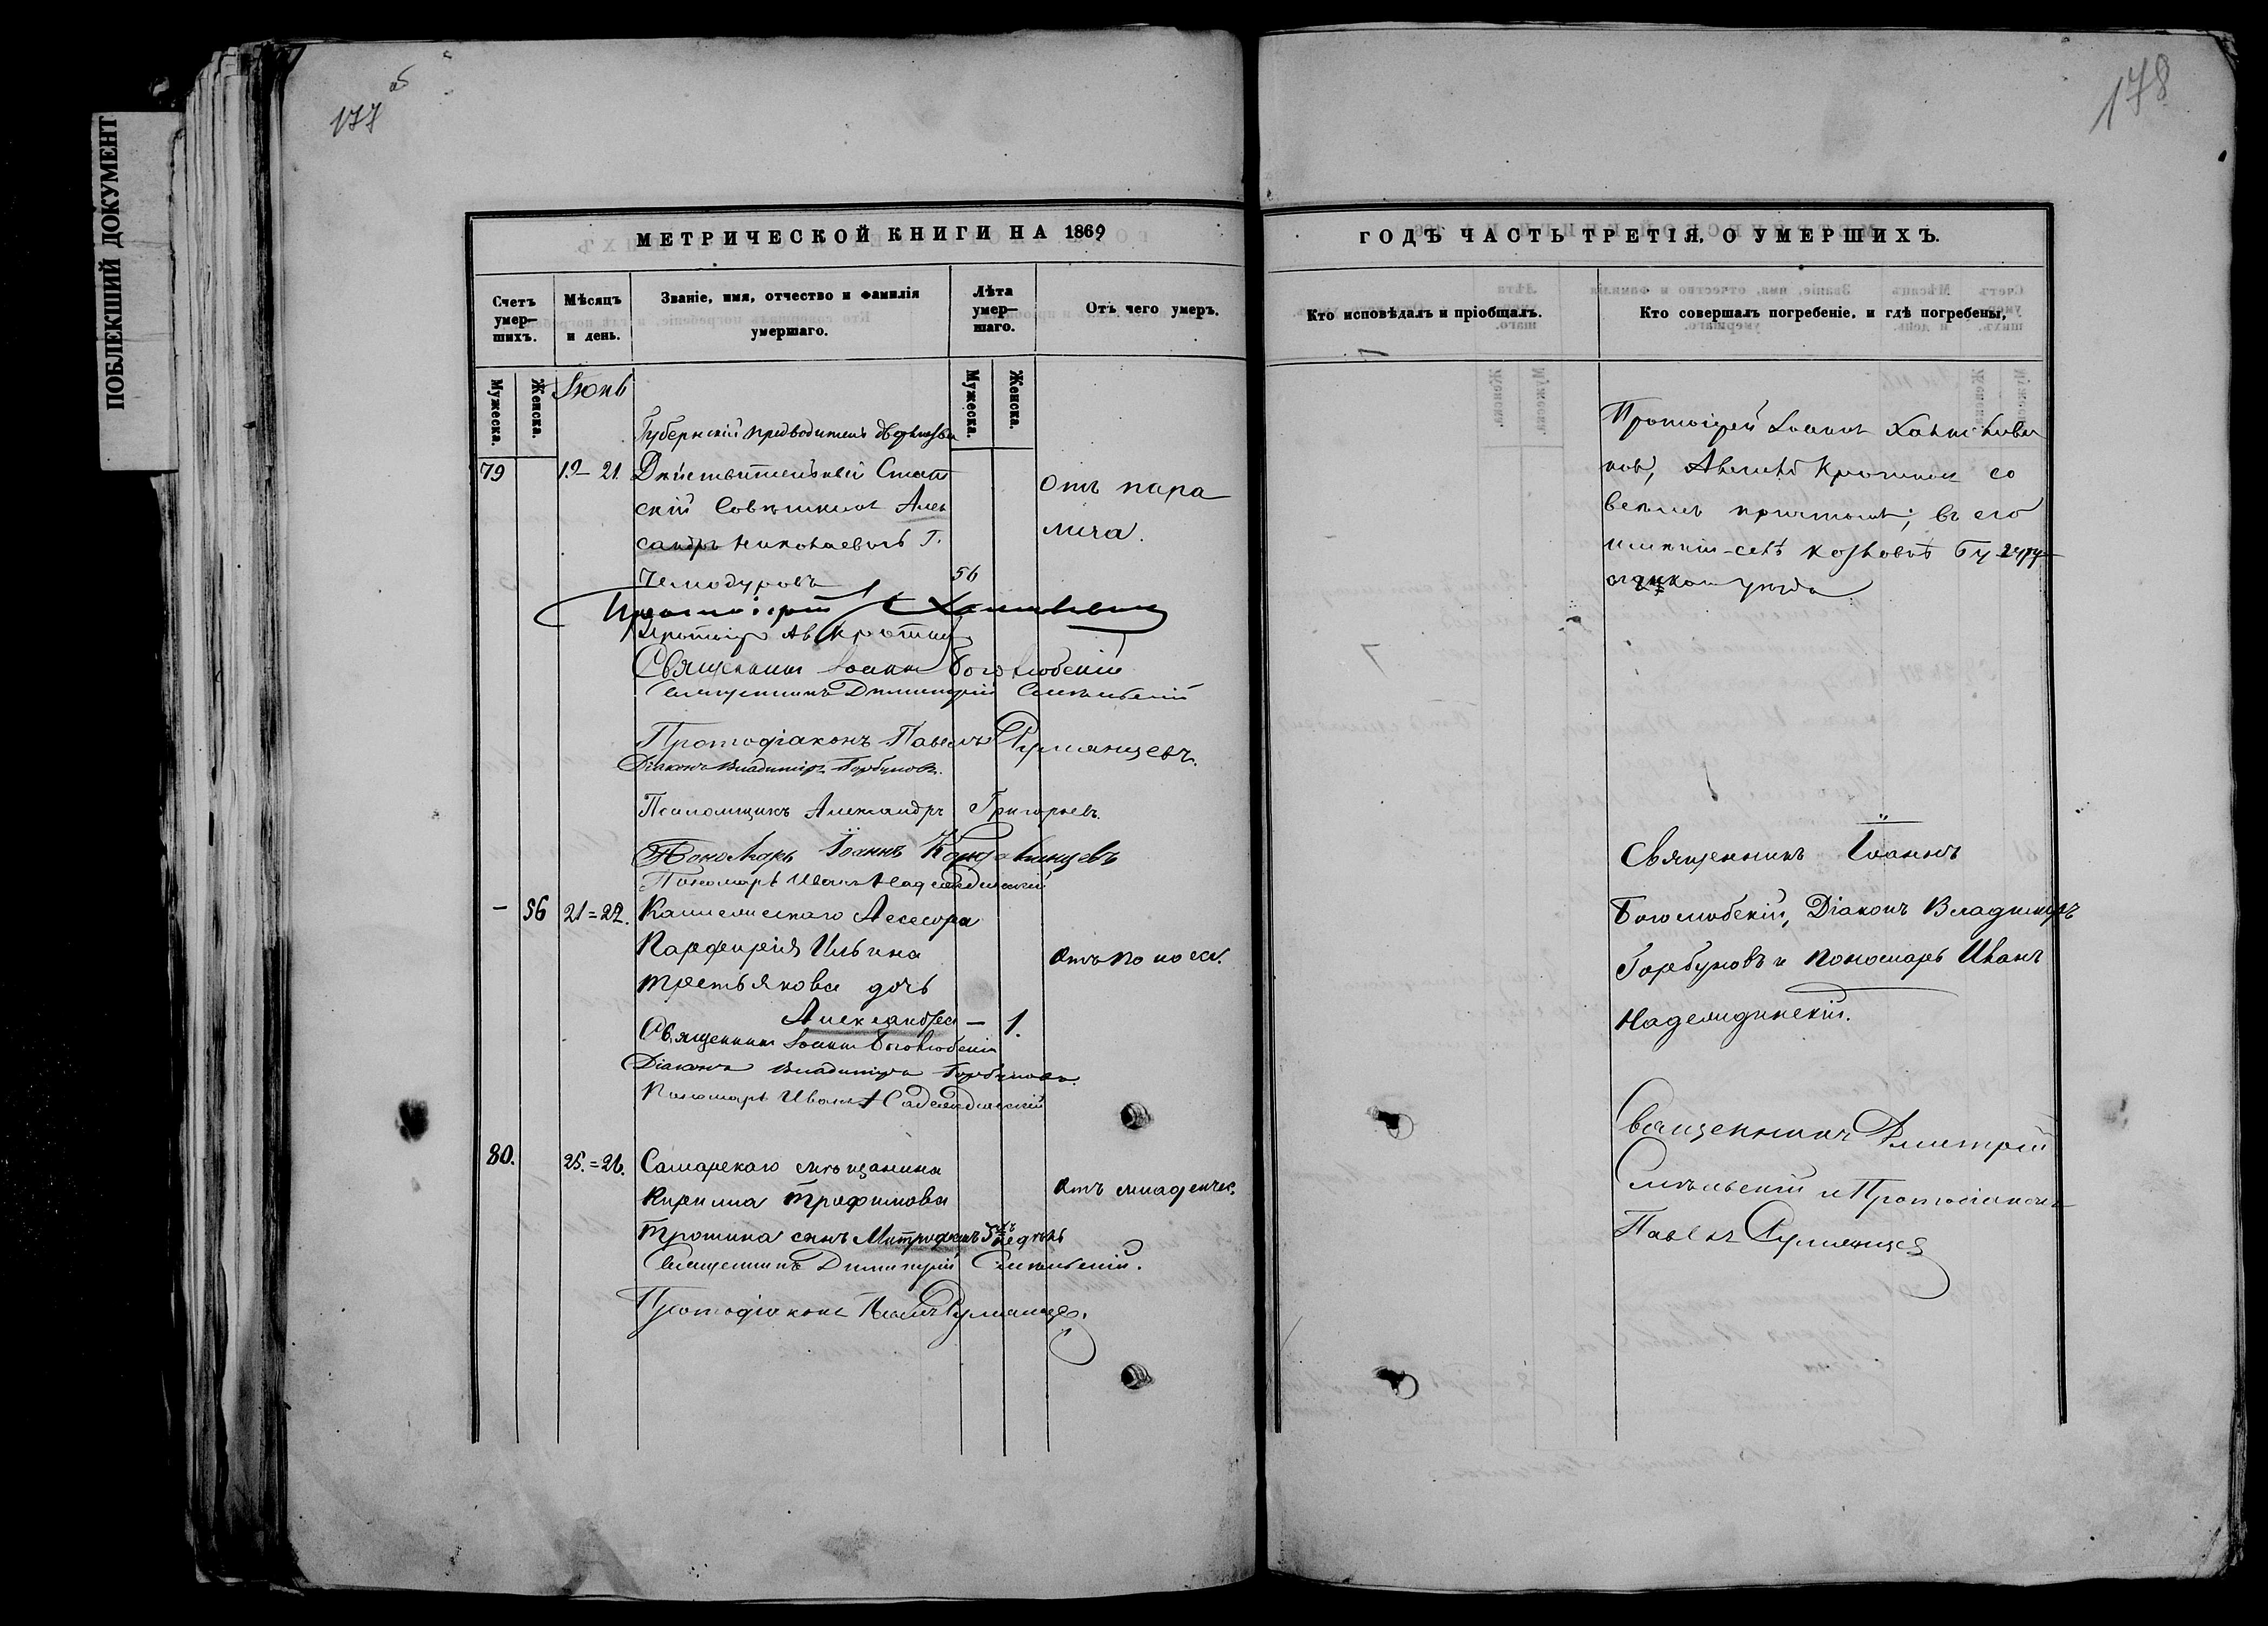 ПОБЛЕКШИЙ ДОКУМЕНТ
177 об
178
МЕТРИЧЕСКОЙ КНИГИ НА 1869
Счетъ умер-шихъ.
Мѣсяцъ и день.
Званіе, имя, отчество и фамилія умершаго.
Лѣта умер-шаго.
Отъ чего умеръ.
Мужеска.
Женска.
Мужеска.
Женска.
Іюнь
Губернскій предводитель
79
19-21.
Дѣйствительный Стат
скій Совѣтникъ Алек
сандръ Николаевичъ Г.
Чемодуровъ
56
Отъ пара
лича.
Протоіерей
Священникъ Іоаннъ Боголюбскій
Священникъ Димитрій Смѣльскій
Протодіаконъ Павелъ Румянцевъ.
Діаконъ Владиміръ Горбуновъ.
Псаломщикъ Александръ Григорьевъ.
Пономарь Іоаннъ
Пономарь Иванъ Надеждинскій
-
56
21=22.
Коллежскаго Асесора
Парфирія Ильина
Третьякова дочь
Александра
-
1.
Отъ поноса.
Священникъ Іоаннъ Боголюбскій
Діаконъ Владиміръ Горбуновъ.
Пономарь Иванъ Надеждинскій
80.
25.=26.
Самарскаго мѣщанина
Кирилла Трофимова
Трошина сынъ Митрофанъ 5 недѣль
Отъ младенчес.
Священникъ Димитрій Смѣльскій.
Протодіаконъ Павелъ Румянцевъ.
ГОДЪ ЧАСТЬ ТРЕТІЯ, О УМЕРШИХЪ.
Кто исповѣдалъ и пріобщалъ.
Кто совершалъ погребеніе, и гдѣ погребены,
Протоіерей Іоаннъ
со
всѣмъ причтомъ, въ его
имѣніи-селѣ
уѣзда
Священникъ Іоаннъ
Боголюбскій, Діаконъ Владиміръ
Горбуновъ и Пономарь Иванъ
Надеждинскій.
Священникъ Димитрій
Смѣльскій и Протодіаконъ
Павелъ Румянцевъ